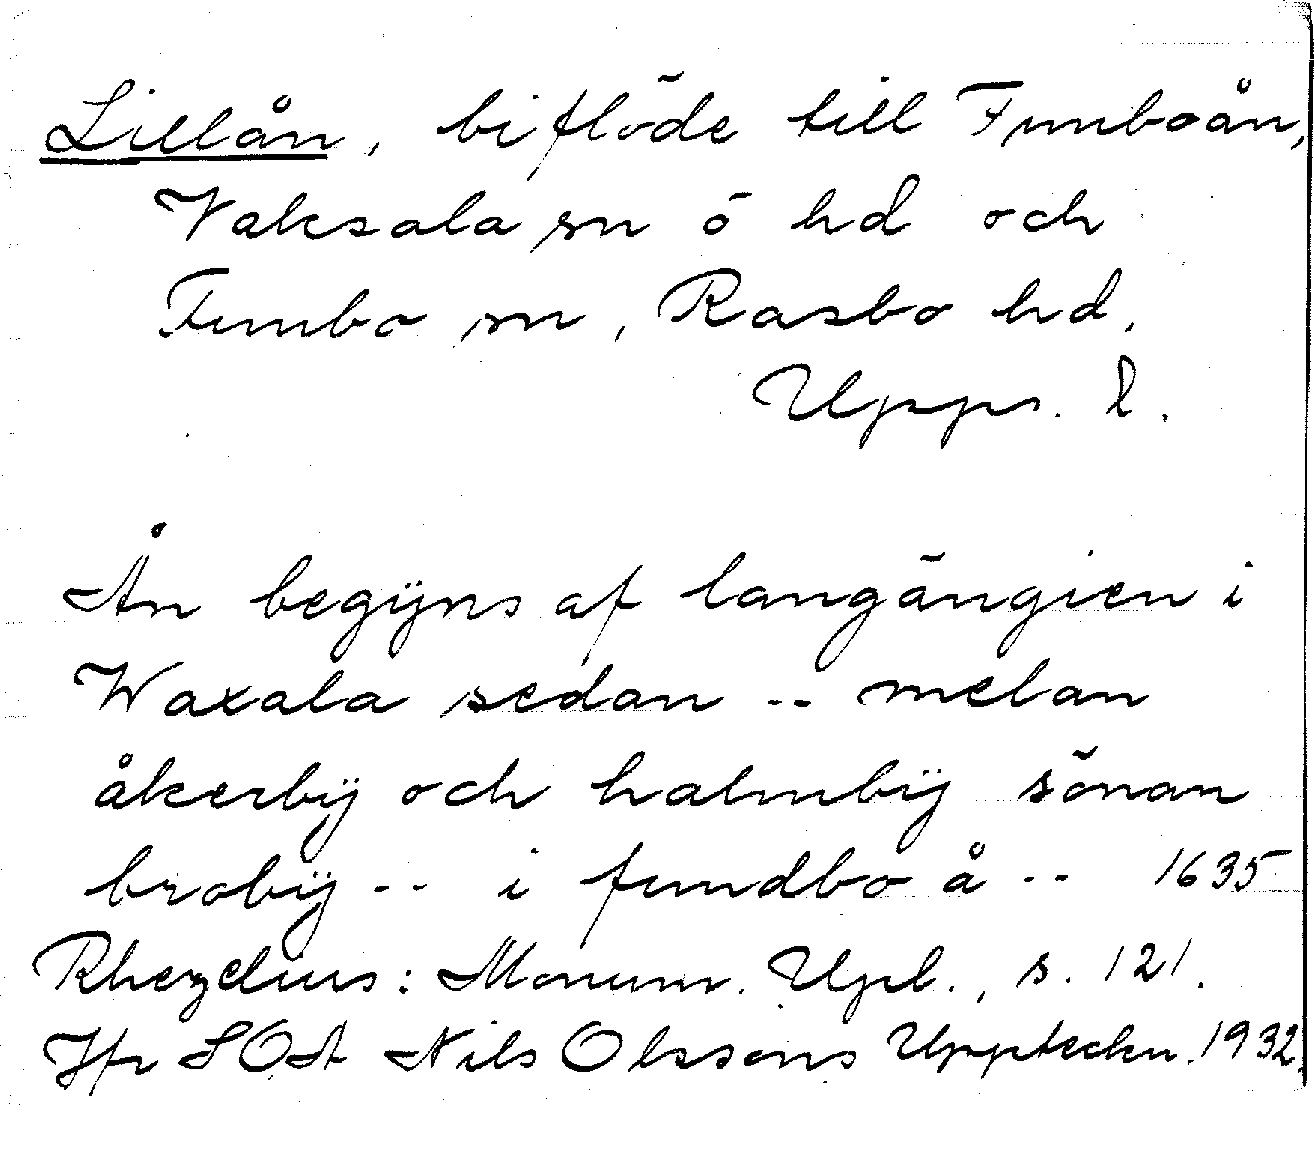 Lillån, biflöde till Funboån,
Vaksala sn ö hd och
Funbo sn, Rasbo hd,
Upps. l.
Ån begÿns af langängien i
Waxala sedan -- melan
åkerbÿ och halmbÿ sönan
brobÿ -- i fundbo å -- 1635
Rhezelius: Monum. Upl., s. 121.
Jfr SOA Nils Olssons Uppteckn. 1932.